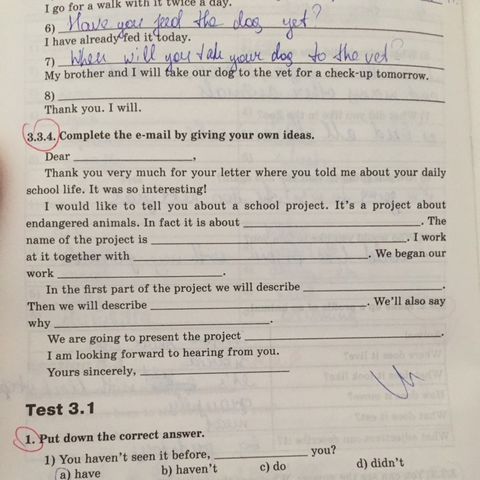 I go for a walk with it twice a day.
6) Have you feed the dog yet?
I have already fed it today.
7) When will you take your dog to the vet?
My brother and I will take our dog to the vet for a check-up tomorrow.
8)
Thank you. I will.
3.3.4. Complete the e-mail by giving your own ideas.
Dear ____________,
Thank you very much for your letter where you told me about your daily
school life. It was so interesting!
I would like to tell you about a school project. It's a project about
endangered animals. In fact it is about ____________. The
name of the project is ____________. I work
at it together with ____________. We began our
work ____________.
In the first part of the project we will describe ____________.
Then we will describe ____________. We'll also say
why ____________.
We are going to present the project ____________.
I am looking forward to hearing from you.
Yours sincerely, ____________
Test 3.1
1. Put down the correct answer.
1) You haven't seen it before, ____________ you?
a) have b) haven't c) do d) didn't